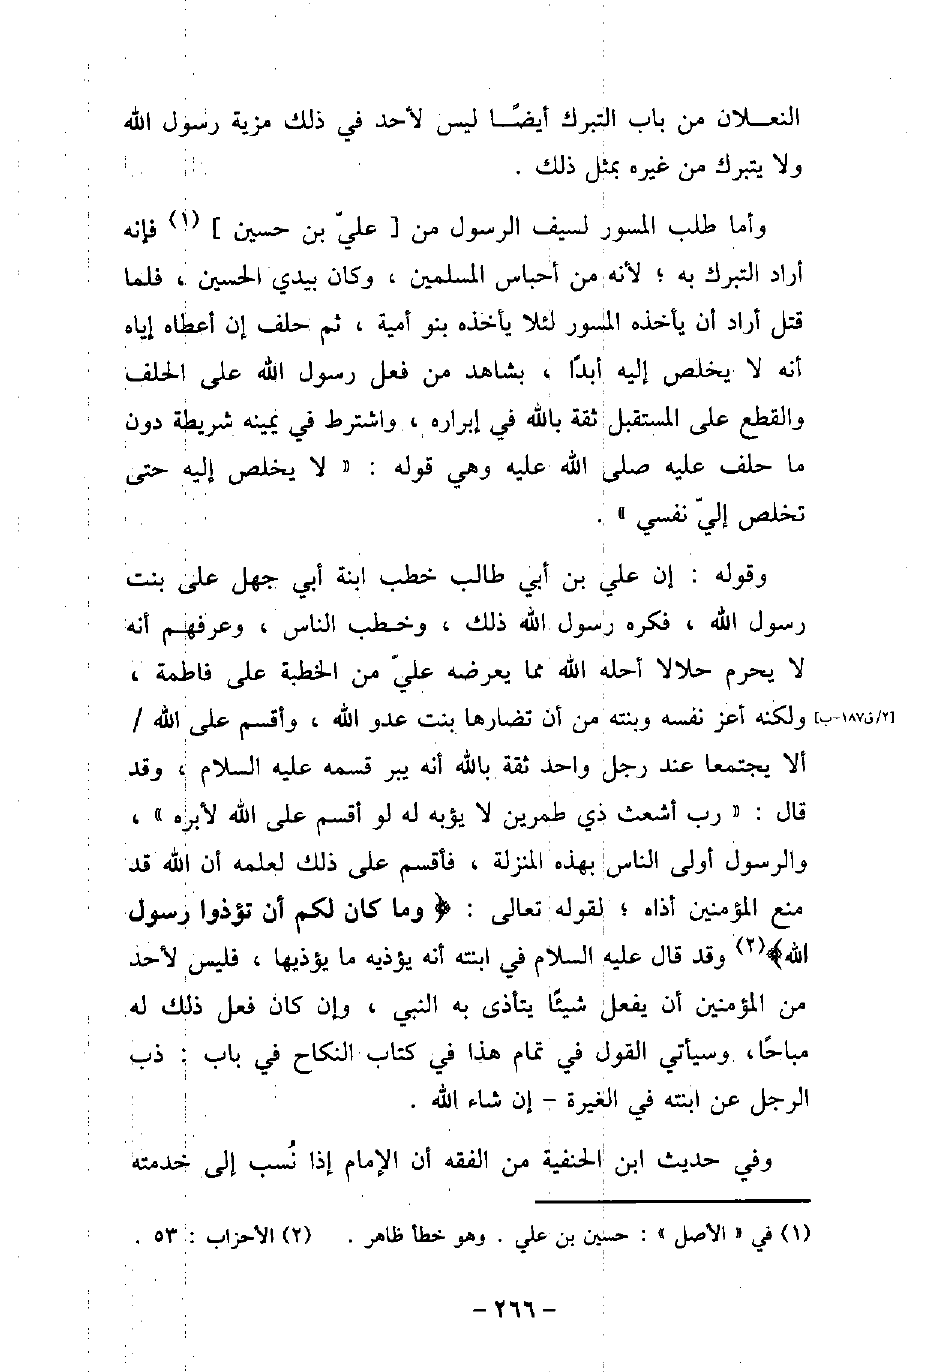 النعـلان من باب التبرك أيضـًا ليس لأحد في ذلك مزية رسول الله
ولا يتبرك من غيره بمثل ذلك .
وأما طلب المسور لسيف الرسول من [ عليّ بن حسين ] (١) فإنه
أراد التبرك به ؛ لأنه من أحباس المسلمين ، وكان بيدي الحسين ، فلما
قتل أراد أن يأخذه المسور لئلا يأخذه بنو أمية ، ثم حلف إن أعطاه إياه
أنه لا يخلص إليه أبدًا ، بشاهد من فعل رسول الله على الحلف
والقطع على المستقبل ثقة بالله في إبراره ، واشترط في يمينه شريطة دون
ما حلف عليه صلى الله عليه وهي قوله : « لا يخلص إليه حتى
تخلص إليّ نفسي » .
وقوله : إن علي بن أبي طالب خطب ابنة أبي جهل على بنت
رسول الله ، فكره رسول الله ذلك ، وخـطب الناس ، وعرفهـم أنه
لا يحرم حلالا أحله الله مما يعرضه عليّ من الخطبة على فاطمة ،
[٢/ق١٨٧-ب] ولكنه أعز نفسه وبنته من أن تضارها بنت عدو الله ، وأقسم على الله /
ألا يجتمعا عند رجل واحد ثقة بالله أنه يبر قسمه عليه السلام ، وقد
قال : « رب أشعث ذي طمرين لا يؤبه له لو أقسم على الله لأبره » ،
والرسول أولى الناس بهذه المنزلة ، فأقسم على ذلك لعلمه أن الله قد
منع المؤمنين أذاه ؛ لقوله تعالى : ﴿ وما كان لكم أن تؤذوا رسول
الله﴾(٢) وقد قال عليه السلام في ابنته أنه يؤذيه ما يؤذيها ، فليس لأحد
من المؤمنين أن يفعل شيئًا يتأذى به النبي ، وإن كان فعل ذلك له
مباحًا، وسيأتي القول في تمام هذا في كتاب النكاح في باب : ذب
الرجل عن ابنته في الغيرة - إن شاء الله .
وفي حديث ابن الحنفية من الفقه أن الإمام إذا نُسب إلى خدمته
(١) في « الأصل » : حسين بن علي . وهو خطأ ظاهر . (٢) الأحزاب : ٥٣ .
- ٢٦٦ -